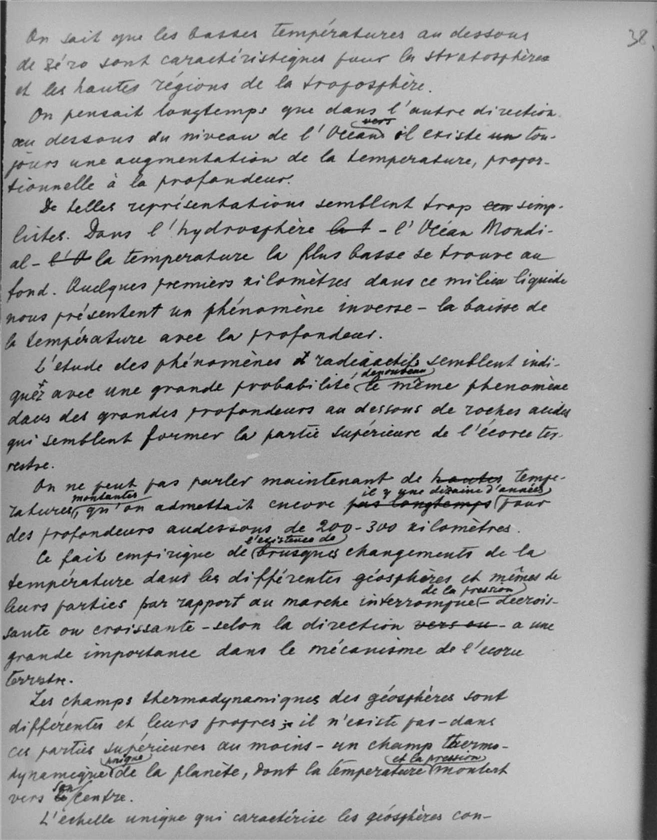 38.
On sait que les basses températures au dessous
de zéro sont caractéristiques pour les stratosphères
et les hautes régions de la troposphère.
On pensait longtemps que dans l'autre direction
vers
au dessous du niveau de l'Océan il existe un tou-
jours une augmentation de la temperature, propor-
tionnelle à la profondeur.
De telles représentations semblent trop simp-
listes. Dans l'hydrosphère - l'Océan Mondi-
al - la temperature la plus basse se trouve au
fond. Quelques premiers kilomètres dans ce milieu liquide
nous présentent un phénomène inverse - la baisse de
la température avec la profondeur.
L'étude des phénomènes radioactifs semblent indi-
de nouveau
quer avec une grande probabilité le même phenomène
dans des grandes profondeurs au dessous de roches acides
qui semblent former la partie supérieure de l'écorce ter-
restre.
On ne peut pas parler maintenant de hautes tempe-
montantes il y une dizaine d'années
ratures, qu'on admettait encore pas longtemps pour
des profondeurs audessous de 200-300 kilomètres.
l'existence de
Ce fait empirique de brusques changements de la
température dans les différentes géosphères et mêmes de
de la pression
leurs parties par rapport au marche interrompue - decrois-
sante ou croissante - selon la direction vers au - a une
grande importance dans le mécanisme de l'écorce
terrestre.
Les champs thermodynamiques des géosphères sont
différentes et leurs propres; il n'existe pas - dans
ces parties supérieures au moins - un champ thermo-
unique et la pression
dynamique de la planète, dont la temperature montent
son
vers le centre.
L'échelle unique qui caractérise les géosphères con-